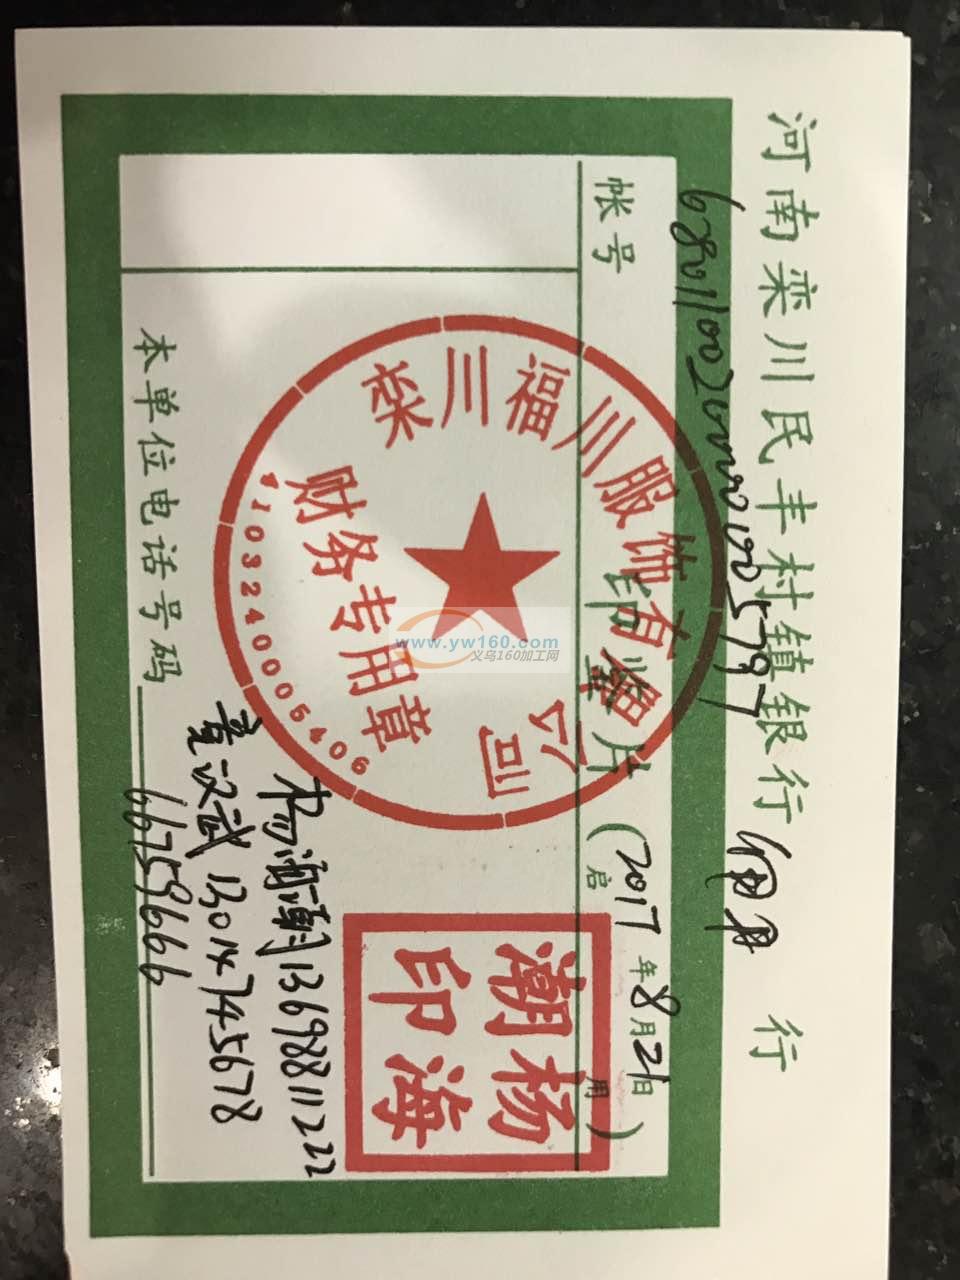 河南栾川民丰村镇银行 行
帐号
印鉴片 (2017年8月21日
启用)
栾川福川服饰有限公司
财务专用章
4103240005406
杨海潮印
www.yw160.com
义乌160加工网
13698811222
13014745678
本单位电话号码 66759666